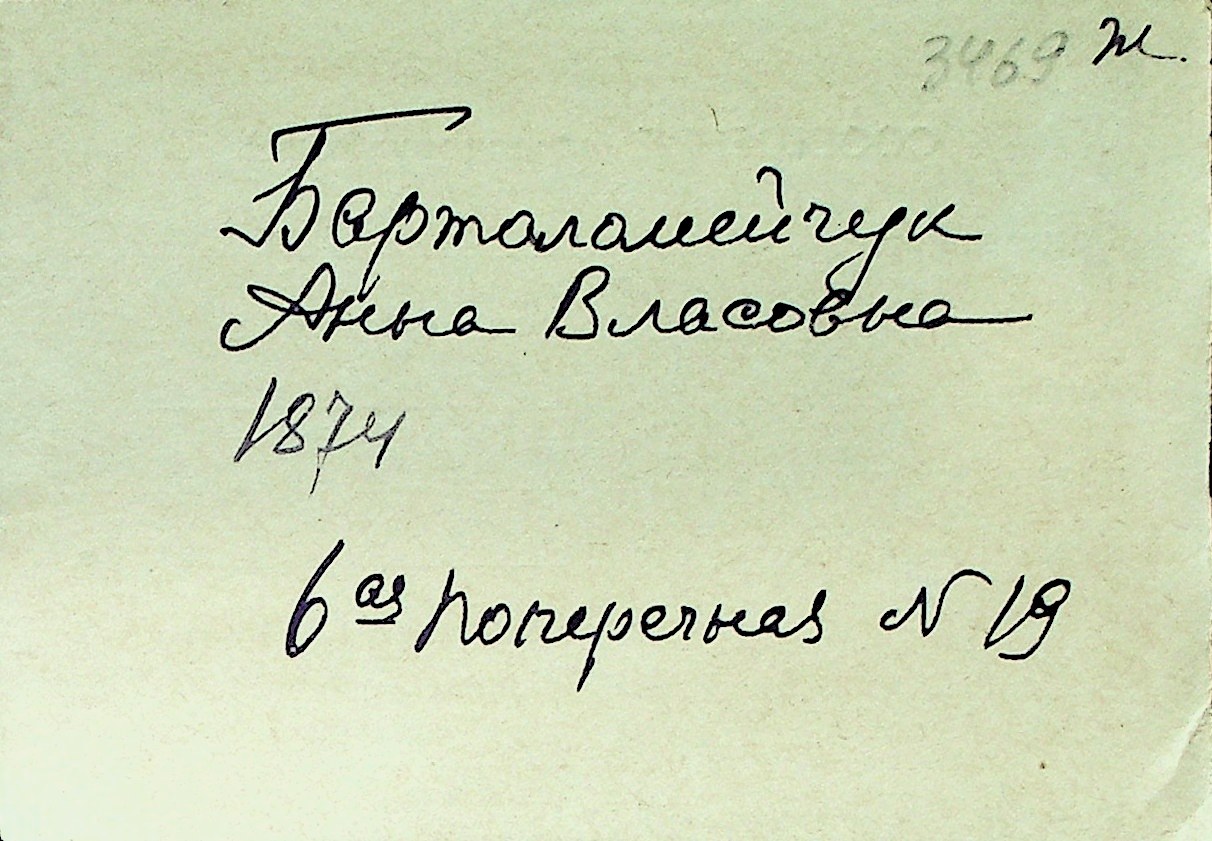 3469 Ж.
Барталамейчук
Анна Власовна
1874
6ая Поперечная N 19